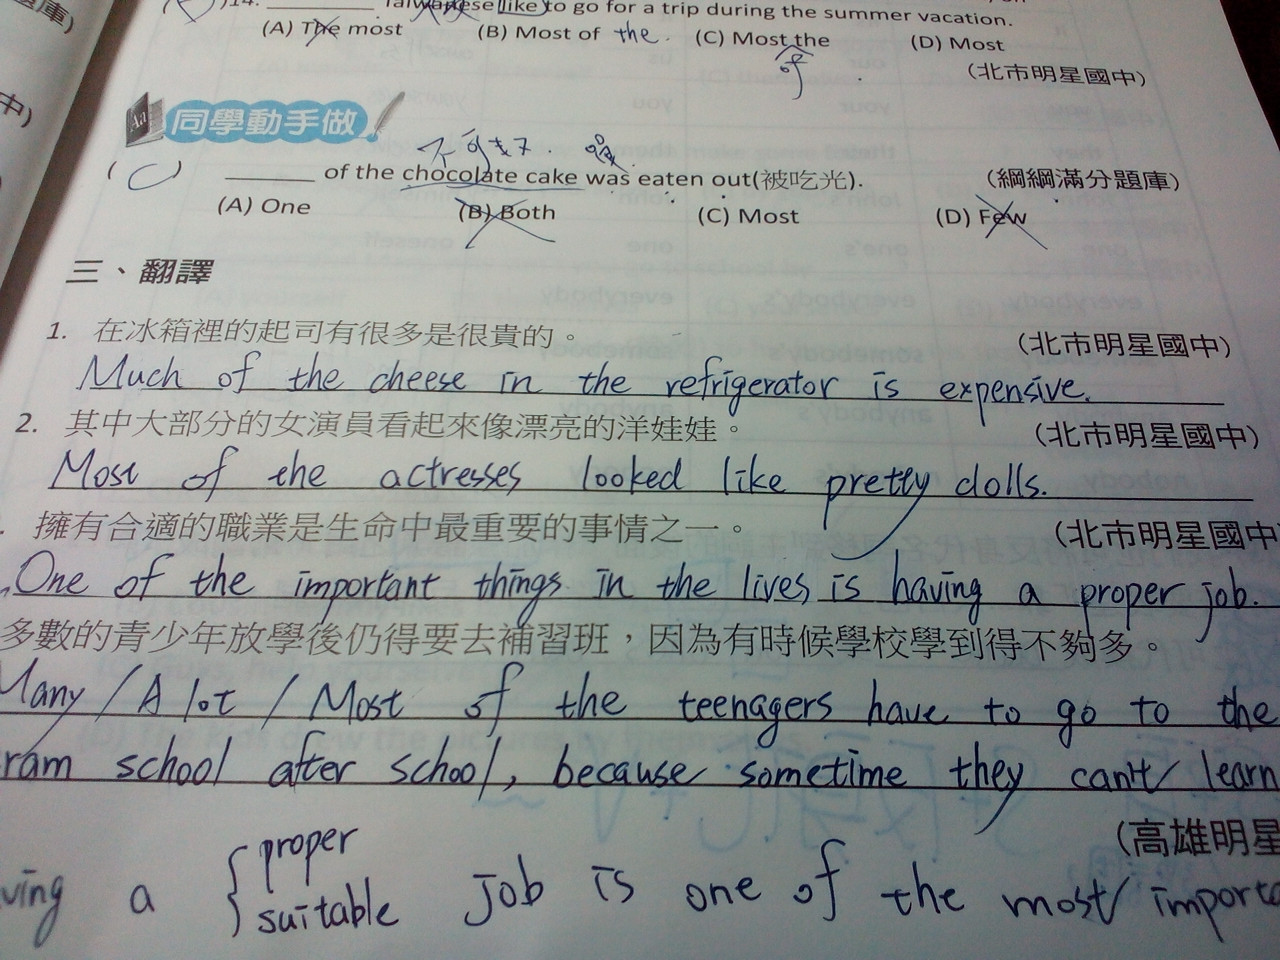 )14. ________ Taiwanese like to go for a trip during the summer vacation.
(A) The most (B) Most of the. (C) Most the (D) Most
(北市明星國中)
同學動手做
不可數
( C ) ________ of the chocolate cake was eaten out(被吃光). (綱綱滿分題庫)
(A) One (B) Both (C) Most (D) Few
三、翻譯
1. 在冰箱裡的起司有很多是很貴的。 (北市明星國中)
Much of the cheese in the refrigerator is expensive.
2. 其中大部分的女演員看起來像漂亮的洋娃娃。 (北市明星國中)
Most of the actresses looked like pretty dolls.
. 擁有合適的職業是生命中最重要的事情之一。 (北市明星國中
One of the important things in the lives is having a proper job.
多數的青少年放學後仍得要去補習班，因為有時候學校學到得不夠多。
Many / A lot / Most of the teenagers have to go to the
ram school after school, because sometime they can't learn
(高雄明星
ving a { proper
suitable job is one of the most importa